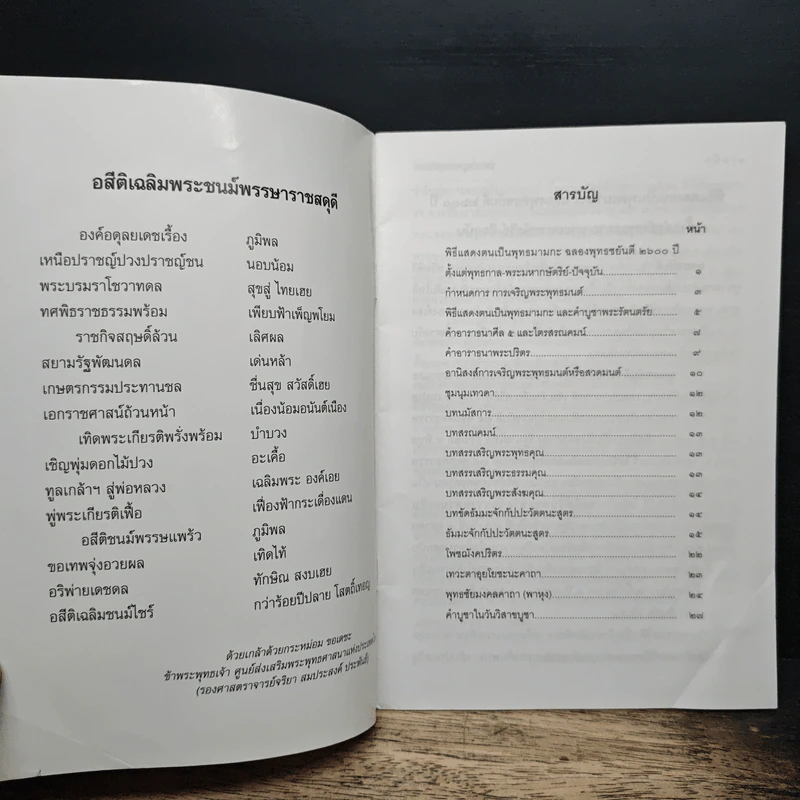 อสีติเฉลิมพระชนม์พรรษาราชสดุดี
องค์อดุลยเดชเรื้อง ภูมิพล
เหนือปราชญ์ปวงปราชญ์ชน นอบน้อม
พระบรมราโชวาทดล สุขสู่ ไทยเฮย
ทศพิธราชธรรมพร้อม เพียบฟ้าเพ็ญพโยม
ราชกิจสฤษดิ์ล้วน เลิศผล
สยามรัฐพัฒนดล เด่นหล้า
เกษตรกรรมประทานชล ชื่นสุข สวัสดิ์เฮย
เอกราชศาสน์ถ้วนหน้า เนื่องน้อมอนันต์เนือง
เทิดพระเกียรติพรั่งพร้อม บำบวง
เชิญพุ่มดอกไม้ปวง อะเคื้อ
ทูลเกล้าฯ สู่พ่อหลวง เฉลิมพระ องค์เอย
พู่พระเกียรติเฟื้อ เฟื่องฟ้ากระเดื่องแดน
อสีติชนม์พรรษแพร้ว ภูมิพล
ขอเทพจุ่งอวยผล เทิดไท้
อริพ่ายเดชดล ทักษิณ สงบเฮย
อสีติเฉลิมชนม์ไซร้ กว่าร้อยปีปลาย โสตถิ์เทอญ
ด้วยเกล้าด้วยกระหม่อม ขอเดชะ
ข้าพระพุทธเจ้า ศูนย์ส่งเสริมพระพุทธศาสนาแห่งประเทศ
(รองศาสตราจารย์จริยา สมประสงค์ ประพันธ์)
สารบัญ
หน้า
พิธีแสดงตนเป็นพุทธมามกะ ฉลองพุทธชยันตี ๒๖๐๐ ปี
ตั้งแต่พุทธกาล-พระมหากษัตริย์-ปัจจุบัน ๑
กำหนดการ การเจริญพระพุทธมนต์ ๓
พิธีแสดงตนเป็นพุทธมามกะ และคำบูชาพระรัตนตรัย ๕
คำอาราธนาศีล ๕ และไตรสรณคมน์ ๗
คำอาราธนาพระปริตร ๙
อานิสงส์การเจริญพระพุทธมนต์หรือสวดมนต์ ๑๐
ชุมนุมเทวดา ๑๒
บทนมัสการ ๑๒
บทสรณคมน์ ๑๓
บทสรรเสริญพระพุทธคุณ ๑๓
บทสรรเสริญพระธรรมคุณ ๑๓
บทสรรเสริญพระสังฆคุณ ๑๔
บทขัดธัมมะจักกัปปะวัตตนะสูตร ๑๔
ธัมมะจักกัปปะวัตตนะสูตร ๑๕
โพชฌังคปริตร ๒๒
เทวะตาอุยโยชะนะคาถา ๒๓
พุทธชัยมงคลคาถา (พาหุง) ๒๔
คำบูชาในวันวิสาขบูชา ๒๗